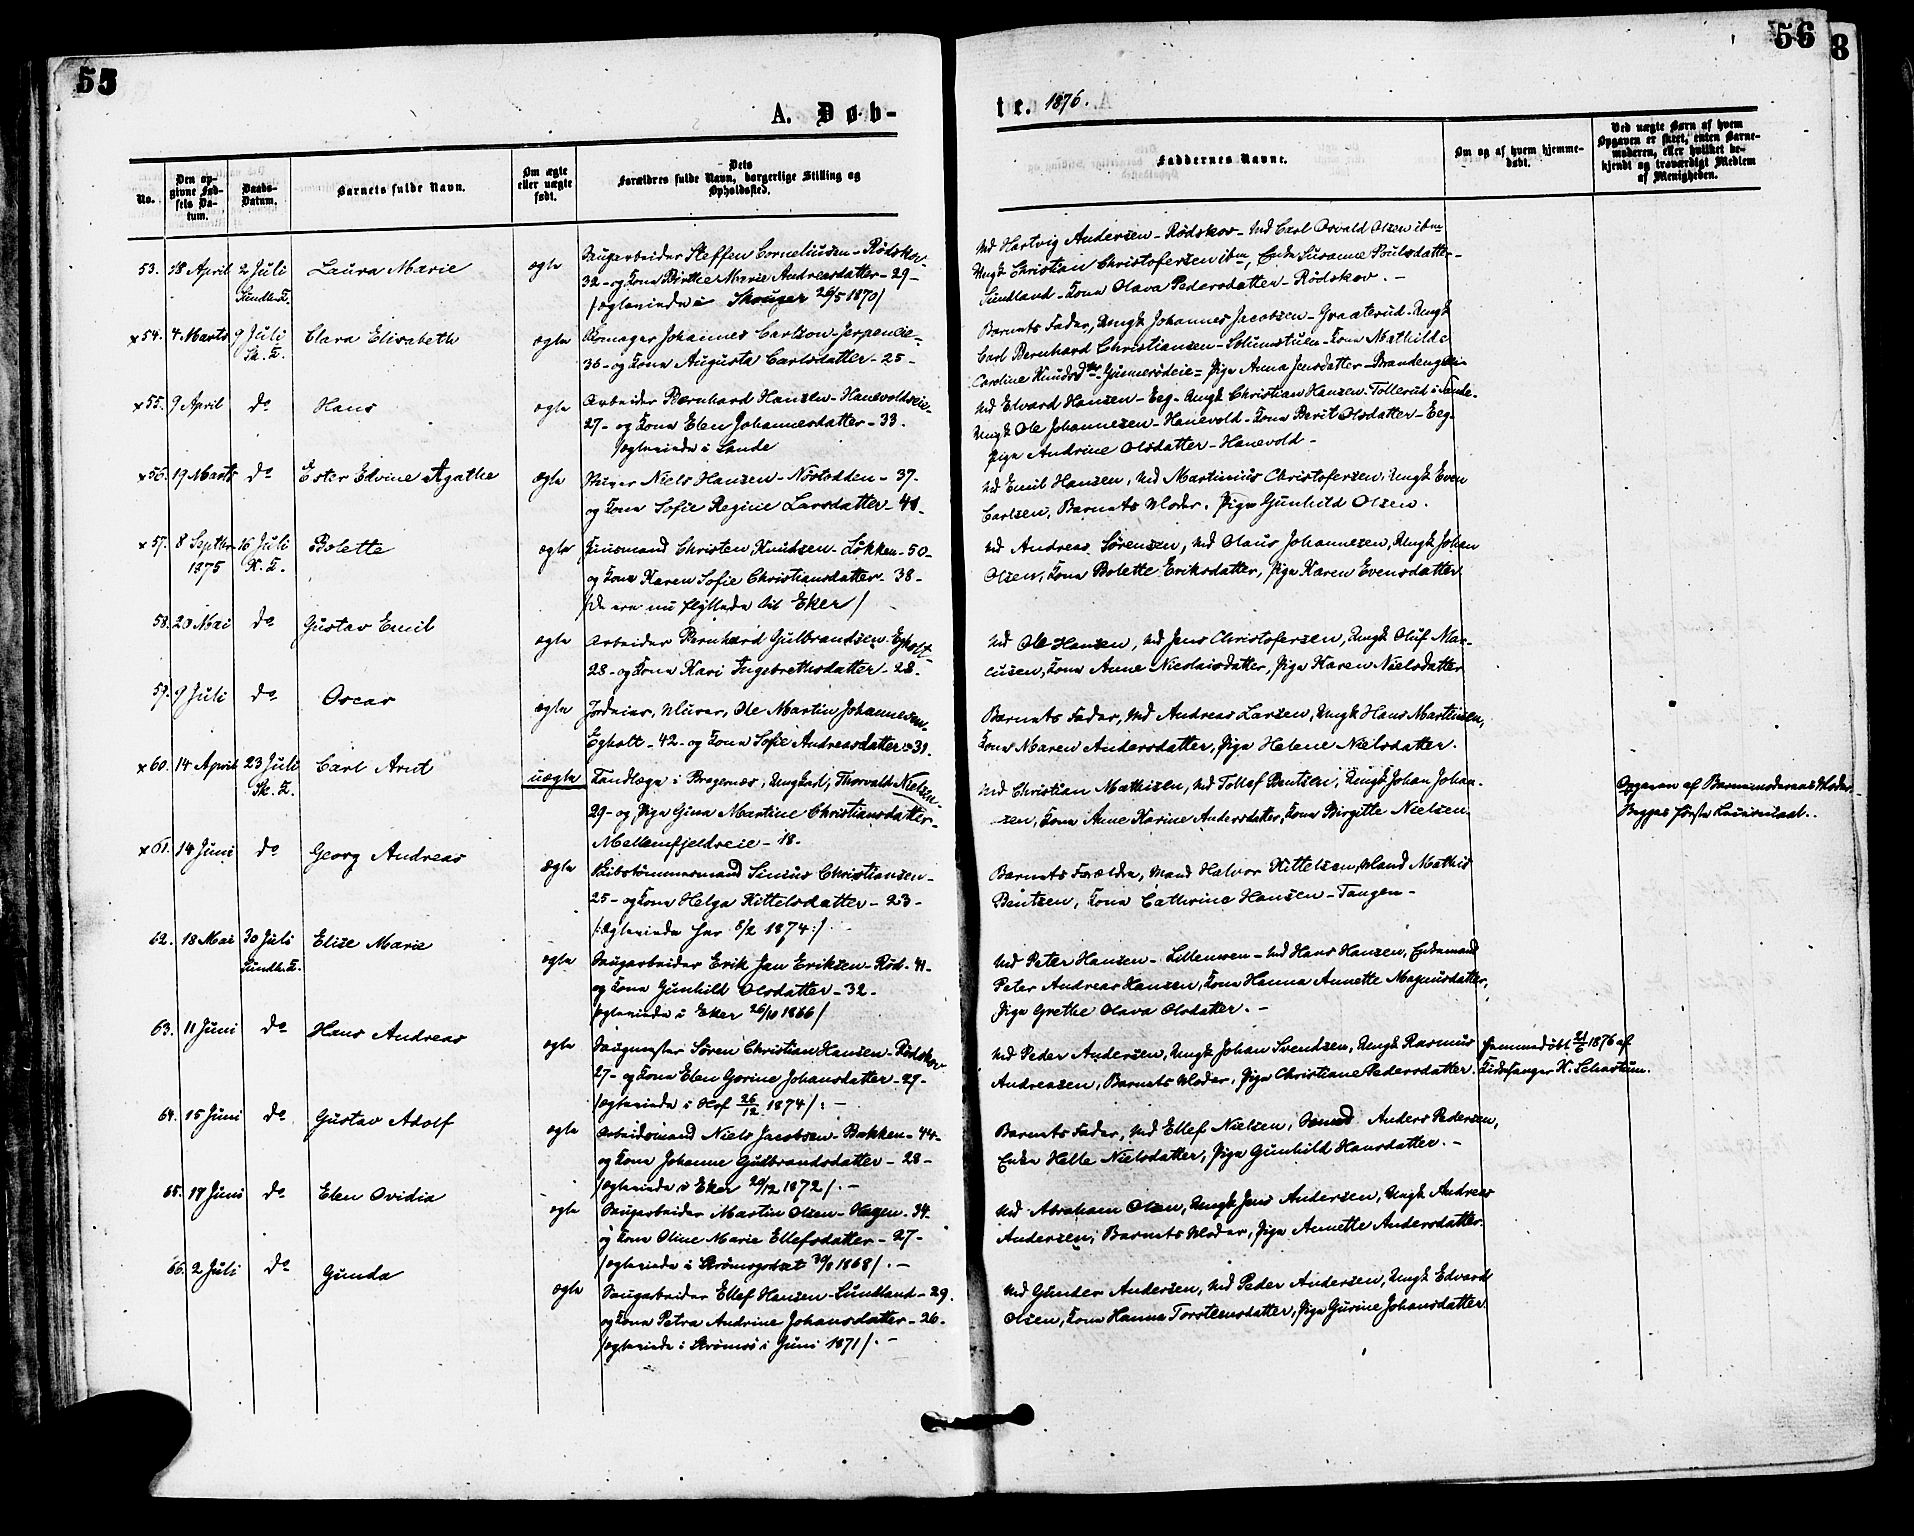 55
56
8
A. Døb-
te. 1876.
No.
Den op-
givne Fød-
sels Da-
tum.
Daabs-
Datum.
Barnets fulde Navn.
Om ægte
eller uægte
født.
Dets
Forældres fulde Navn, borgerlige Stilling og
Opholdssted.
Faddernes Navne.
Om og af hvem hjemme-
døbt.
Ved uægte Børn af hvem
Opgaven er skeet, enten Barne-
moderen, eller hvilket be-
kjendt og troværdigt Medlem
af Menigheden.
53. 18 April 2 Juli Laura Marie ægte Saugarbeider Steffen Corneliusen - Rødskov
Sundh. T. 32 - og Kone Birthe Marie Andreasdatter - 29 -
/ægteviede i Skouger 26/5 1870/
Ud Hartvig Andersen - Rødskov - Ud Carl Osvald Olsen ibm
Ungk Christian Christofersen ibm, Enke Susanne Poulsdatter -
Sundland - Kone Olava Pedersdatter - Rødskov. -
x 54. 4 Marts 9 Juli Clara Elisabeth ægte Skomager Johannes Carlson - Jerpeneie -
Sk. T. 36 - og Kone Augusta Carlsdatter - 25 -
Barnets Fader, Ungk Johannes Jacobsen - Graaterud - Ungk
Carl Bernhard Christiansen - Solumstuen - Kone Mathilde
Caroline Knudsdtr - Gusmerødeie = Pige Anna Jensdatter - Brandengen -
x 55. 9 April do Hans ægte Arbeider Bernhard Hansen - Hanevoldseie -
27 - og Kone Elen Johannesdatter - 33.
/ægteviede i Sande
Ud Edvard Hansen - Eeg - Ungk Christian Hansen - Tollerud i Sande -
Ungk Ole Johannesen - Hanevold - Kone Berit Olsdatter - Eeg -
Pige Andrine Olsdatter - Hanevold -
x 56. 19 Marts do Ester Edvine Agathe ægte Murer Niels Hansen - Nøstodden - 37.
og Kone Sofie Regine Larsdatter - 41 -
Ud Emil Hansen, Ud Martinius Christofersen, Ungk Even
Carlsen, Barnets Moder, Pige Gunhild Olsen.
x 57. 8 Septbr 16 Juli Bolette ægte Huusmand Christen Knudsen - Løkken - 50 -
1875 K. T. og Kone Karen Sofie Christiansdatter - 38 -
/De ere nu flyttede til Eker/
Ud Andreas Sørensen, Ud Olaus Johannesen, Ungk Johan
Olsen, Kone Bolette Eriksdatter, Pige Karen Evensdatter
58. 20 Mai do Gustav Emil ægte Arbeider Bernhard Gulbrandsen - Egholt -
28 - og Kone Kari Ingebrethsdatter - 28 -
Ud Ole Hansen, Ud Jens Christofersen, Ungk Oluf Mar-
cusen, Kone Anne Nicolaisdatter, Pige Karen Nielsdatter
59. 9 Juli do Oscar ægte Jordeier, Murer, Ole Martin Johannesen -
Egholt - 42 - og Kone Sofie Andreasdatter - 31.
Barnets Fader, Ud Andreas Larsen, Ungk Hans Martinsen,
Kone Maren Andersdatter, Pige Helene Nielsdatter.
x 60. 14 April 23 Juli Carl Arnt uægte Tandlæge i Bragernæs, Ungkarl, Thorvald Nielsen -
Sk. T. 29 - og Pige Gina Martine Christiansdatter -
Mellemfjeldseie - 18 -
Ud Christian Mathisen, Ud Tollef Bentsen, Ungk Johan Johan-
sen, Kone Anne Karine Andersdatter, Kone Birgitte Nielsen
Opgaven af Barnemoderens Moder.
Begges første Leiermaal..
x 61. 14 Juni do Georg Andreas ægte Skibstømmermand Sinius Christiansen -
25 - og Kone Helga Kittelsdatter - 23 -
/:ægteviede her 8/2 1874:/
Barnets Forældre, Mand Halvor Kittelsen, Mand Mathis
Bentzen, Kone Cathrine Hansen - Tangen -
62. 18 Mai 30 Juli Elise Marie ægte Saugarbeider Erik Jan Eriksen - Rød - 41 -
Sundh. T. og Kone Gunhild Olsdatter - 32 -
/ægteviede i Eker 26/10 1866/
Ud Peter Hansen - Lillemoen - Ud Hans Hansen, Enkemand
Peter Andreas Hansen, Kone Hanna Annette Magnusdatter,
Pige Grethe Olava Olsdatter. -
63. 11 Juni do Hans Andreas ægte Saugmester Søren Christian Hansen - Rødskov
27 - og Kone Elen Gorine Johansdatter - 27 -
/ægteviede i Hof 26/12 1874/: -
Ud Peder Andersen, Ungk Johan Svendsen, Ungk Rasmus
Andreasen, Barnets Moder, Pige Christiane Pedersdatter.
Hjemmedøbt 21/6 1876 af
Kirkesanger K. Schartum.
64. 15 Juni do Gustav Adolf ægte Arbeidsmand Niels Jacobsen - Bakken - 44 -
og Kone Johanne Gulbrandsdatter - 28 -
/ægteviede i Eker 20/12 1872/. -
Barnets Fader, Ud Ellef Nielsen, Anders Pedersen,
Enke Helle Nielsdatter, Pige Gunhild Hansdatter. -
65. 17 Juni do Elen Ovidia ægte Saugarbeider Martin Olsen - Hagen - 34 -
og Kone Oline Marie Ellefsdatter - 27 -
/ægteviede i Strømsgodset 1868/. -
Ud Abraham Olsen, Ungk Jens Andersen, Ungk Andreas
Andersen, Barnets Moder, Pige Annette Andersdatter.
66. 2 Juli do Gunda ægte Saugarbeider Ellef Hansen - Sundland - 29.
og Kone Petra Andrine Johansdatter - 26 -
/ægteviede i Strømsø i Juni 1871/. -
Ud Gunder Andersen, Ud Peder Andersen, Ungk Edvard
Olsen, Kone Hanna Torstensdatter, Pige Gurine Johansdatter